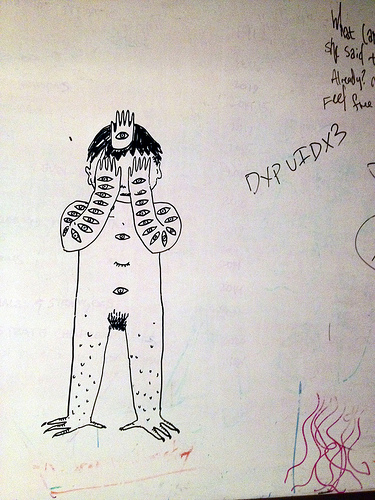 What can
she said t
Already?
Feel free
DXPUIDX3